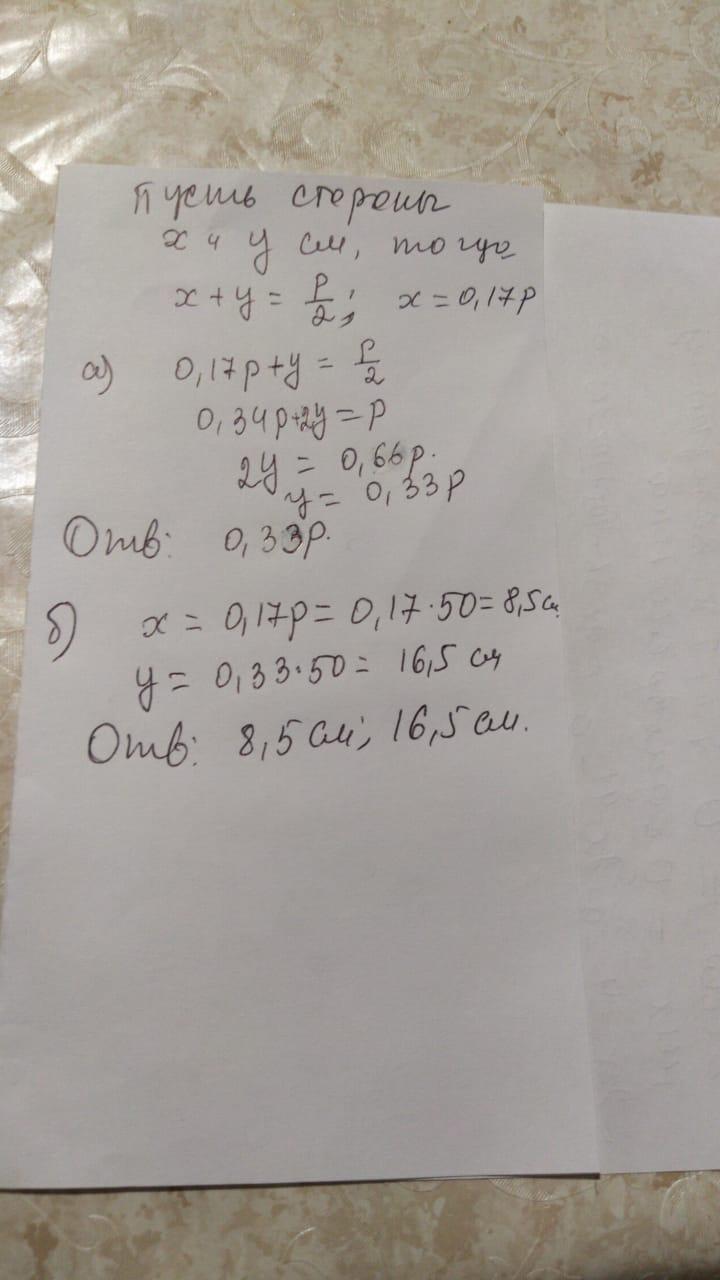 Пусть стороны
x и y см, тогда
x + y = p/2; x = 0,17p
а) 0,17p + y = p/2
0,34p + 2y = p
2y = 0,66p.
y = 0,33p
Отв: 0,33p.
б) x = 0,17p = 0,17·50 = 8,5 см
y = 0,33·50 = 16,5 см
Отв: 8,5 см; 16,5 см.